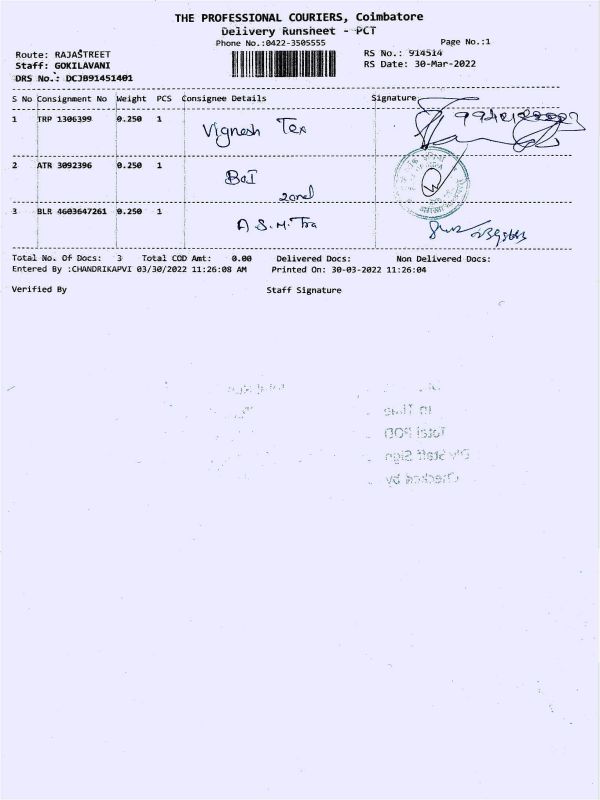 THE PROFESSIONAL COURIERS, Coimbatore
Delivery Runsheet - PCT
Phone No.:0422-3505555
Page No.:1
Route: RAJASTREET
RS No.: 914514
Staff: GOKILAVANI
RS Date: 30-Mar-2022
DRS No.: DCJ091451401
S No Consignment No Weight PCS Consignee Details Signature
1 TRP 1306399 0.250 1 Vignesh Tex
2 ATR 3092396 0.250 1 BOI
zonel
3 BLR 4603647261 0.250 1 A.S.M. Tra
Total No. Of Docs: 3 Total COD Amt: 0.00 Delivered Docs: Non Delivered Docs:
Entered By :CHANDRIKAPVI 03/30/2022 11:26:08 AM Printed On: 30-03-2022 11:26:04
Verified By Staff Signature
In Time
Total POD
Dly Staff Sign
Checked by